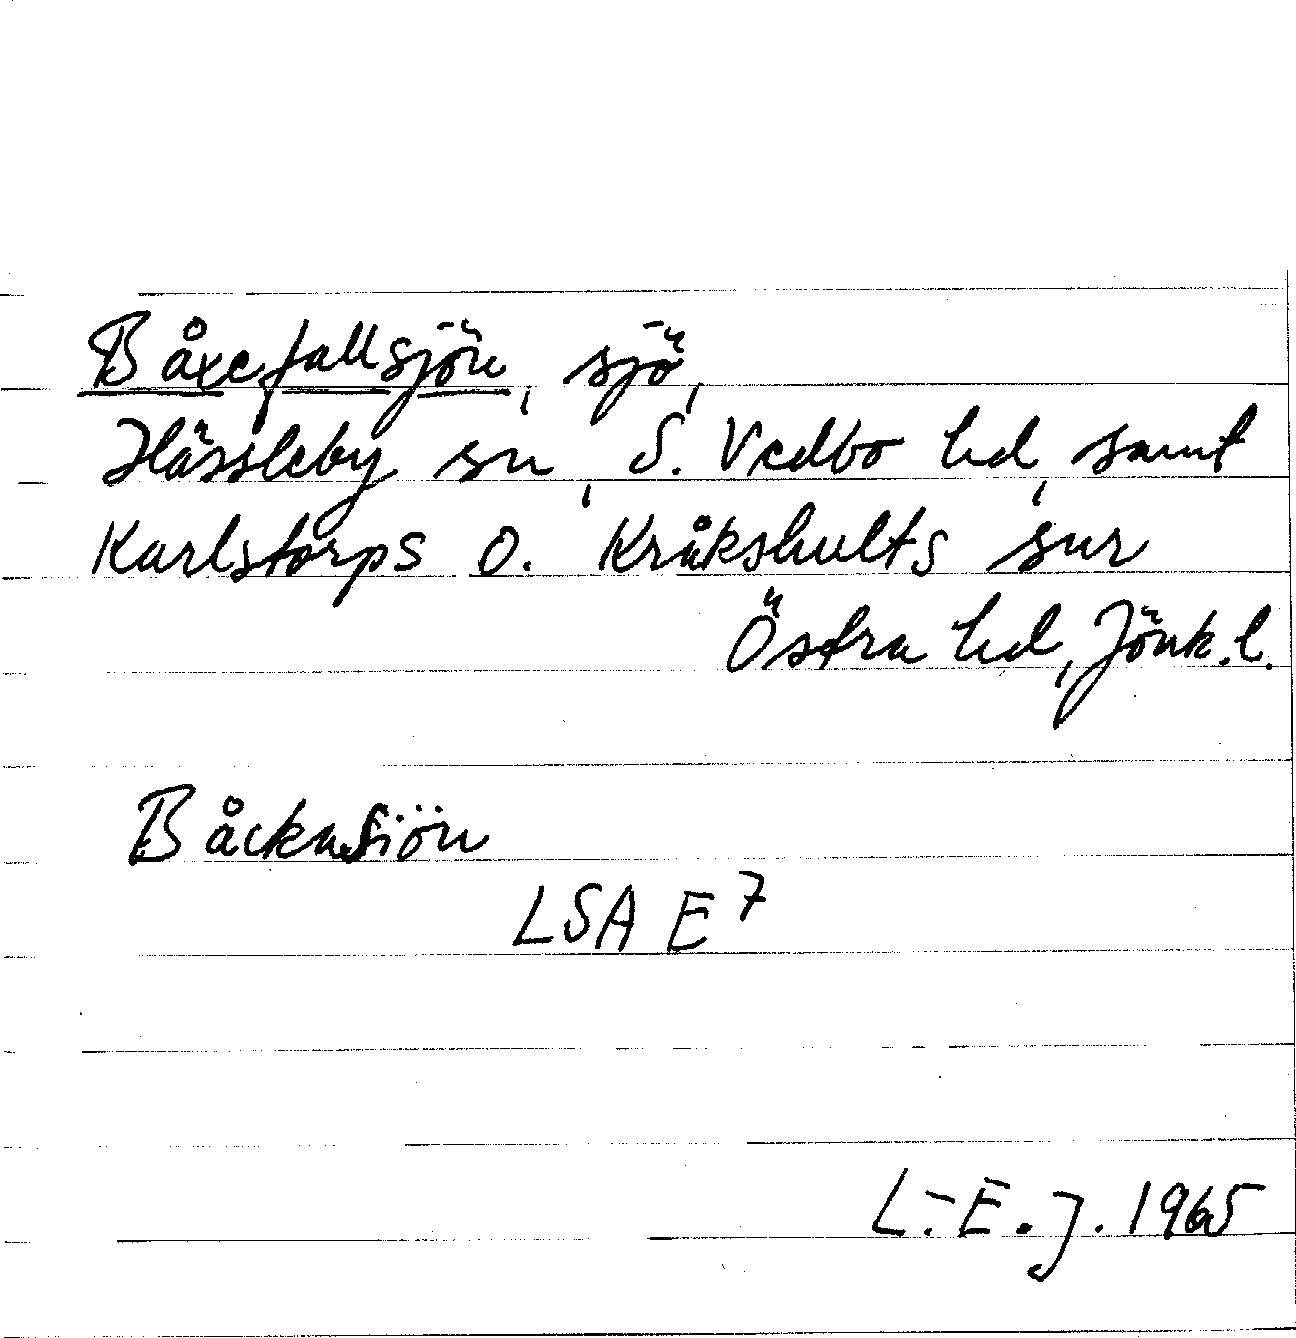 Båxefallsjön, sjö,
Hässleby sn, S. Vedbo hd, samt
Karlstorps o. Kråkshults snr
Östra hd, Jönk.l.
Båcknasiön
LSA E7
L.-E.J. 1965